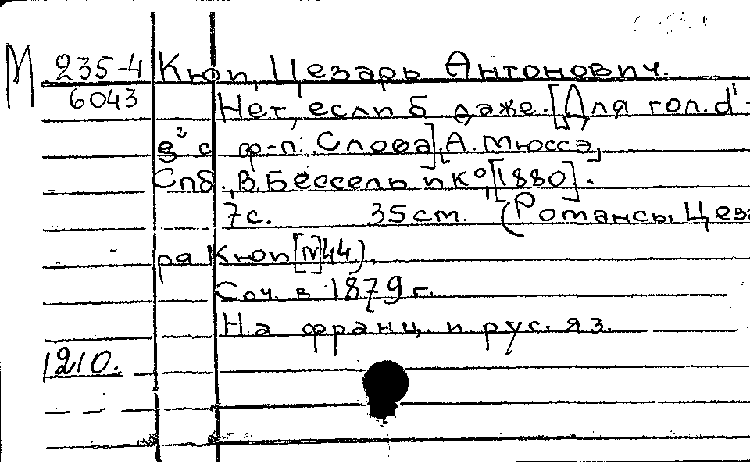 М 235-4 Кюи, Цезарь Антонович.
6043 Нет, если б даже. [Для гол. d'-
e² с ф-п. Слова] А. Мюссэ,
Спб., В. Бессель и Ко, [1880].
7с. 35 см. (Романсы Цеза
ра Кюи [№44).
Соч. в 1879 г.
На франц. и рус. яз.
1210.